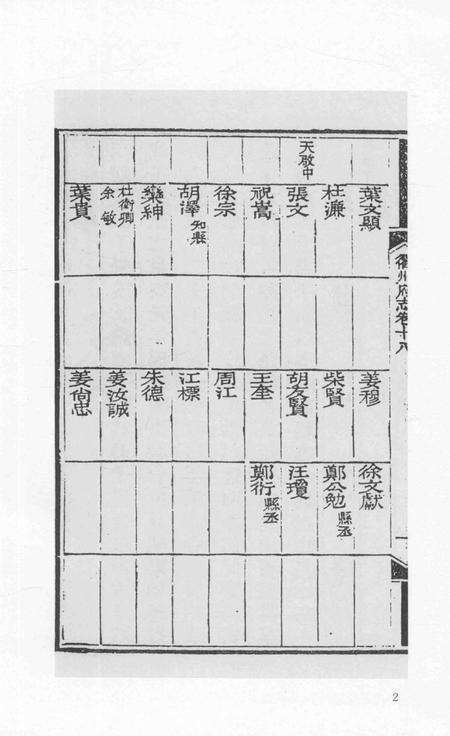 衢州府志卷十八
葉文顯
枉濂
天啟中
張文
祝嵩
徐宗
胡澤知縣
欒紳
杜衛卿
余敏
葉貴
姜穆
柴賢
胡友賢
王奎
周江
江標
朱德
姜汝誠
姜尙忠
徐文獻
鄭公勉縣丞
汪瓊
鄭衍縣丞
2